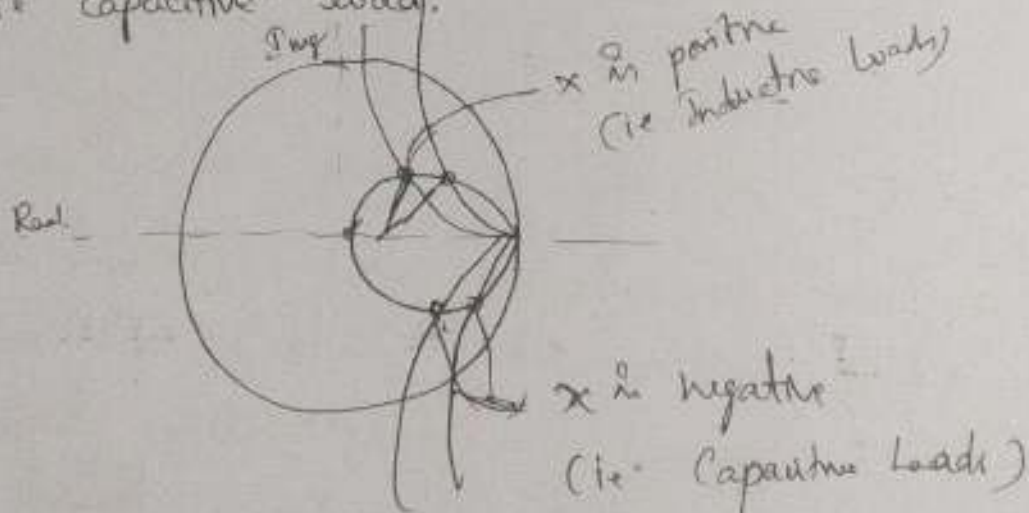 capacitive
Img
x is positive
(ie Inductive Loads)
Real
x is negative
(ie. Capacitive Loads)